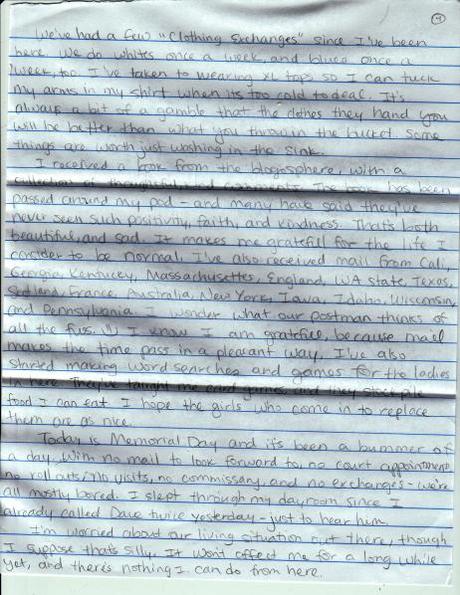 4
We've had a few "Clothing Exchanges" since I've been
here. We do whites once a week, and blues once a
week, too. I've taken to wearing XL tops so I can tuck
my arms in my shirt when its too cold to deal. It's
always a bit of a gamble that the clothes they hand you
will be better than what you throw in the bucket. Some
things are worth just washing in the sink.
I received a book from the blogosphere, with a
collection of thoughtful comments. The book has been
passed around my pod - and many have said they've
never seen such positivity, faith, and kindness. That's both
beautiful, and sad. It makes me gratefull for the life I
consider to be normal. I've also received mail from Cali,
Georgia, Kentucky, Massachusettes, England, WA state, Texas,
France, Australia, New York, Iowa, Idaho, Wisconsin,
and Pennsylvania. I wonder what our postman thinks of
all the fuss. I know I am grateful, because mail
makes the time pass in a pleasant way. I've also
started making word searches and games for the ladies
in here. They've taught me card games, and they stockpile
food I can eat. I hope the girls who come in to replace
them are as nice.
Today is Memorial Day and it's been a bummer of
a day. With no mail to look forward to, no court appointments,
no roll outs, no visits, no commissary, and no exchanges - we're
all mostly bored. I slept through my dayroom since I
already called Dave twice yesterday - just to hear him.
I'm worried about our living situation out there, though
I suppose that's silly. It won't affect me for a long while
yet, and there's nothing I can do from here.